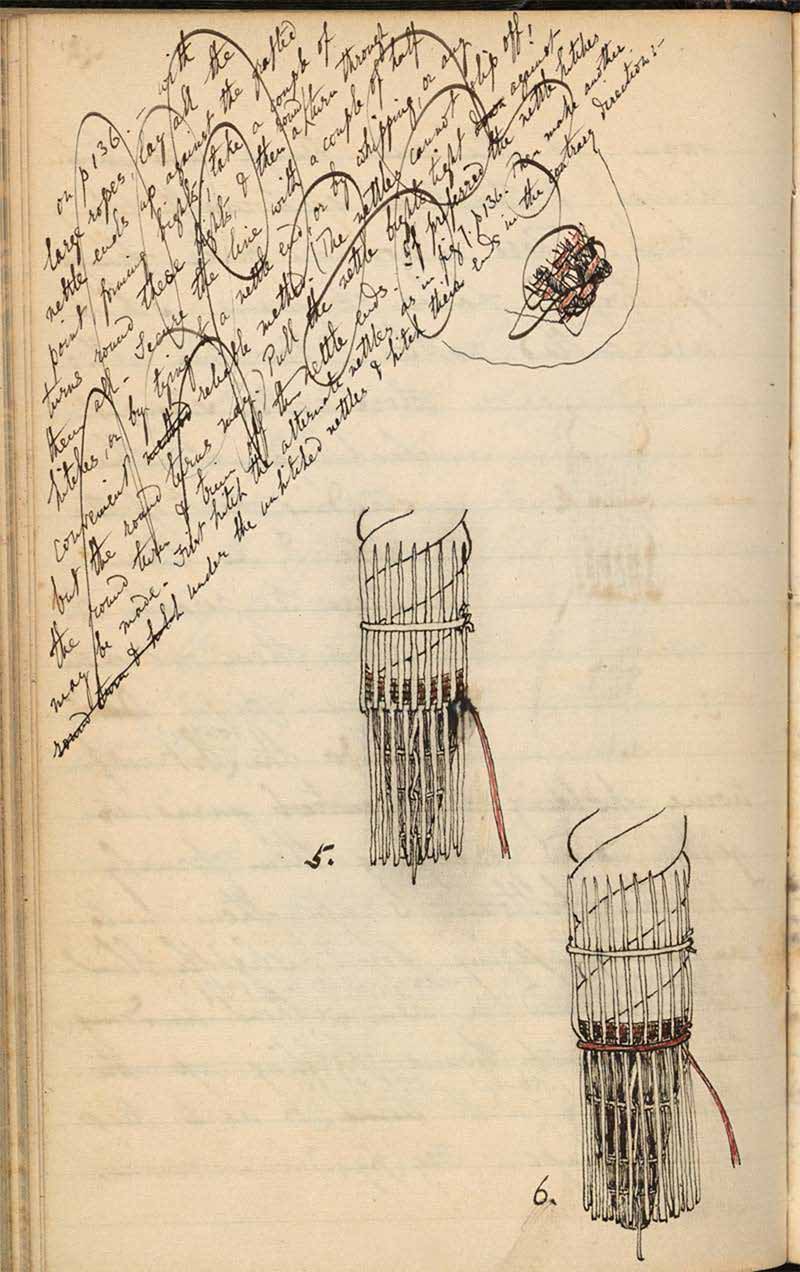 on p 136. – with
large ropes, lay all the
nettle ends up against the grafted
point forming bights, take a couple of
turns round these bights, & then a round turn through
them all – Secure the line with a couple of half
hitches, or by tying to a nettle end, or by whipping, or any
convenient method reliable method. (The nettles cannot slip off!
but the round turns may.) Pull the nettle bights tight down against
the round turn & trim off the nettle ends. If preferred the nettle hitches
may be made – First hitch the alternate nettles as in fig 7. p 136. Then make another
round turn & hitch under the unhitched nettles & hitch their ends in the contrary direction:–
5.
6.